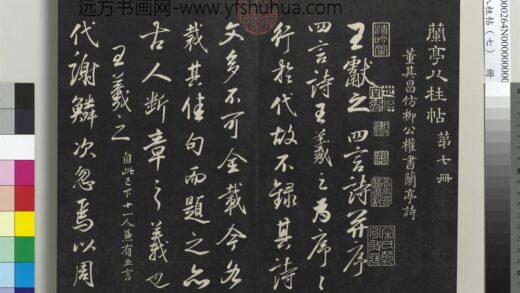 远方书画网-www.yfshuhua.com
蘭亭八柱帖 第七冊
董其昌仿柳公權書蘭亭詩
王獻之四言詩并序
四言詩王羲之為序序
行於代故不録其詩
文多不可全載今各
裁其佳句而題之亦
古人斷章之義也
王羲之
自此已下十一人兼有五言
代謝鱗次忽焉以周
八柱帖(七) 冊